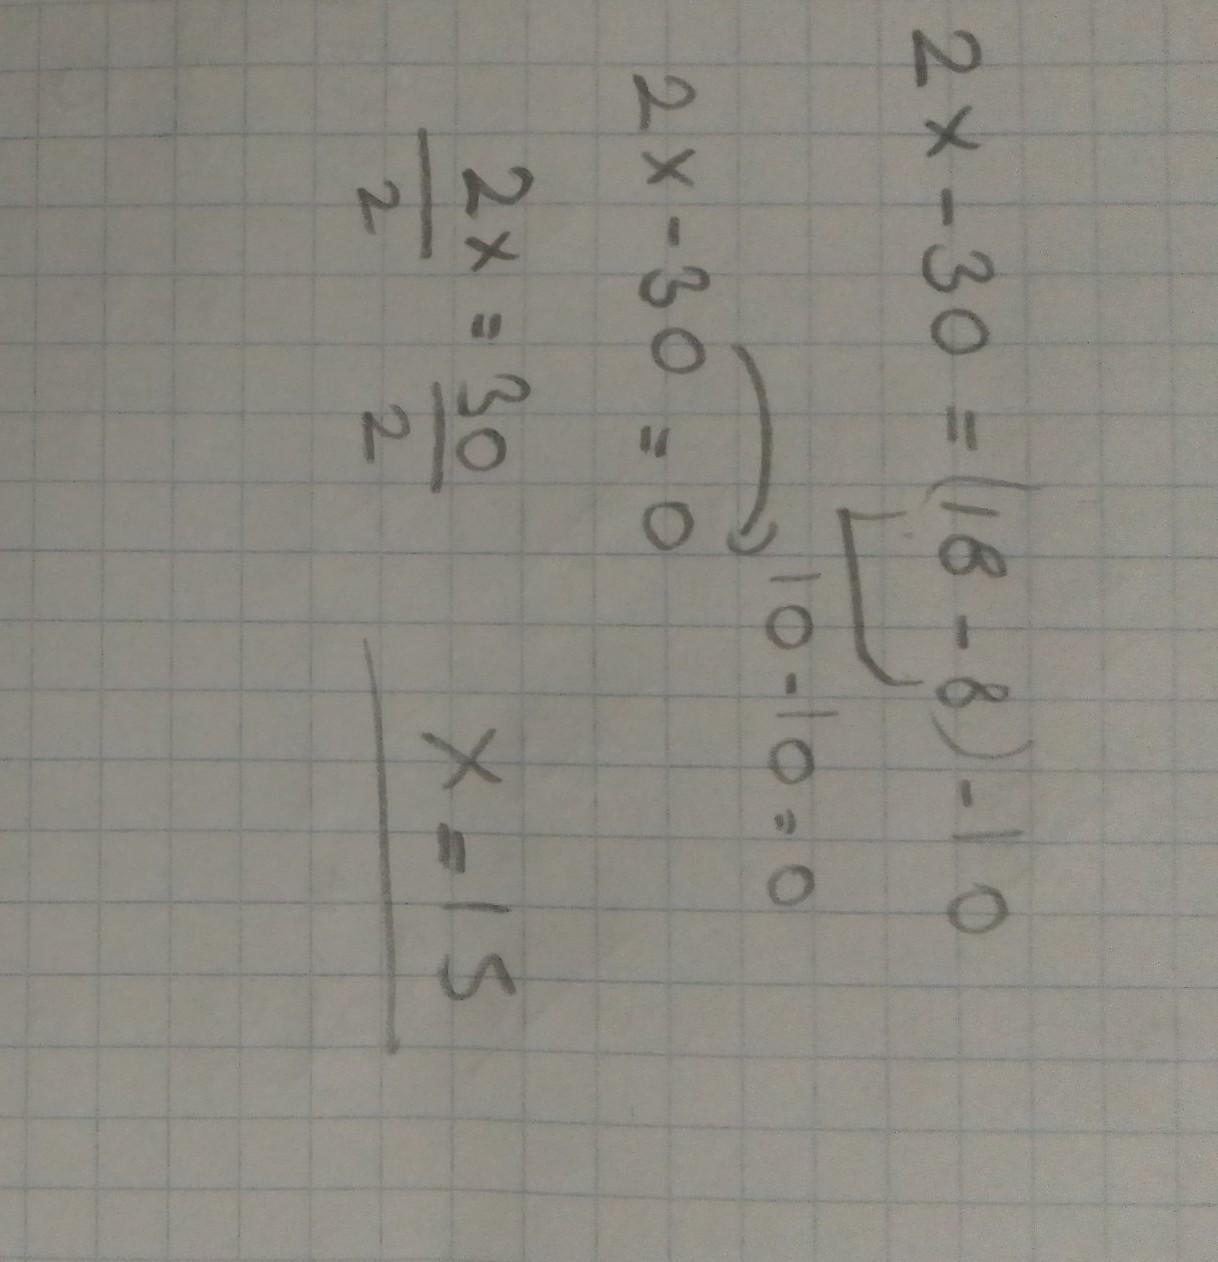 2x - 30 = (18 - 8) - 10
10 - 10 = 0
2x - 30 = 0
2x = 30
2 2
x = 15